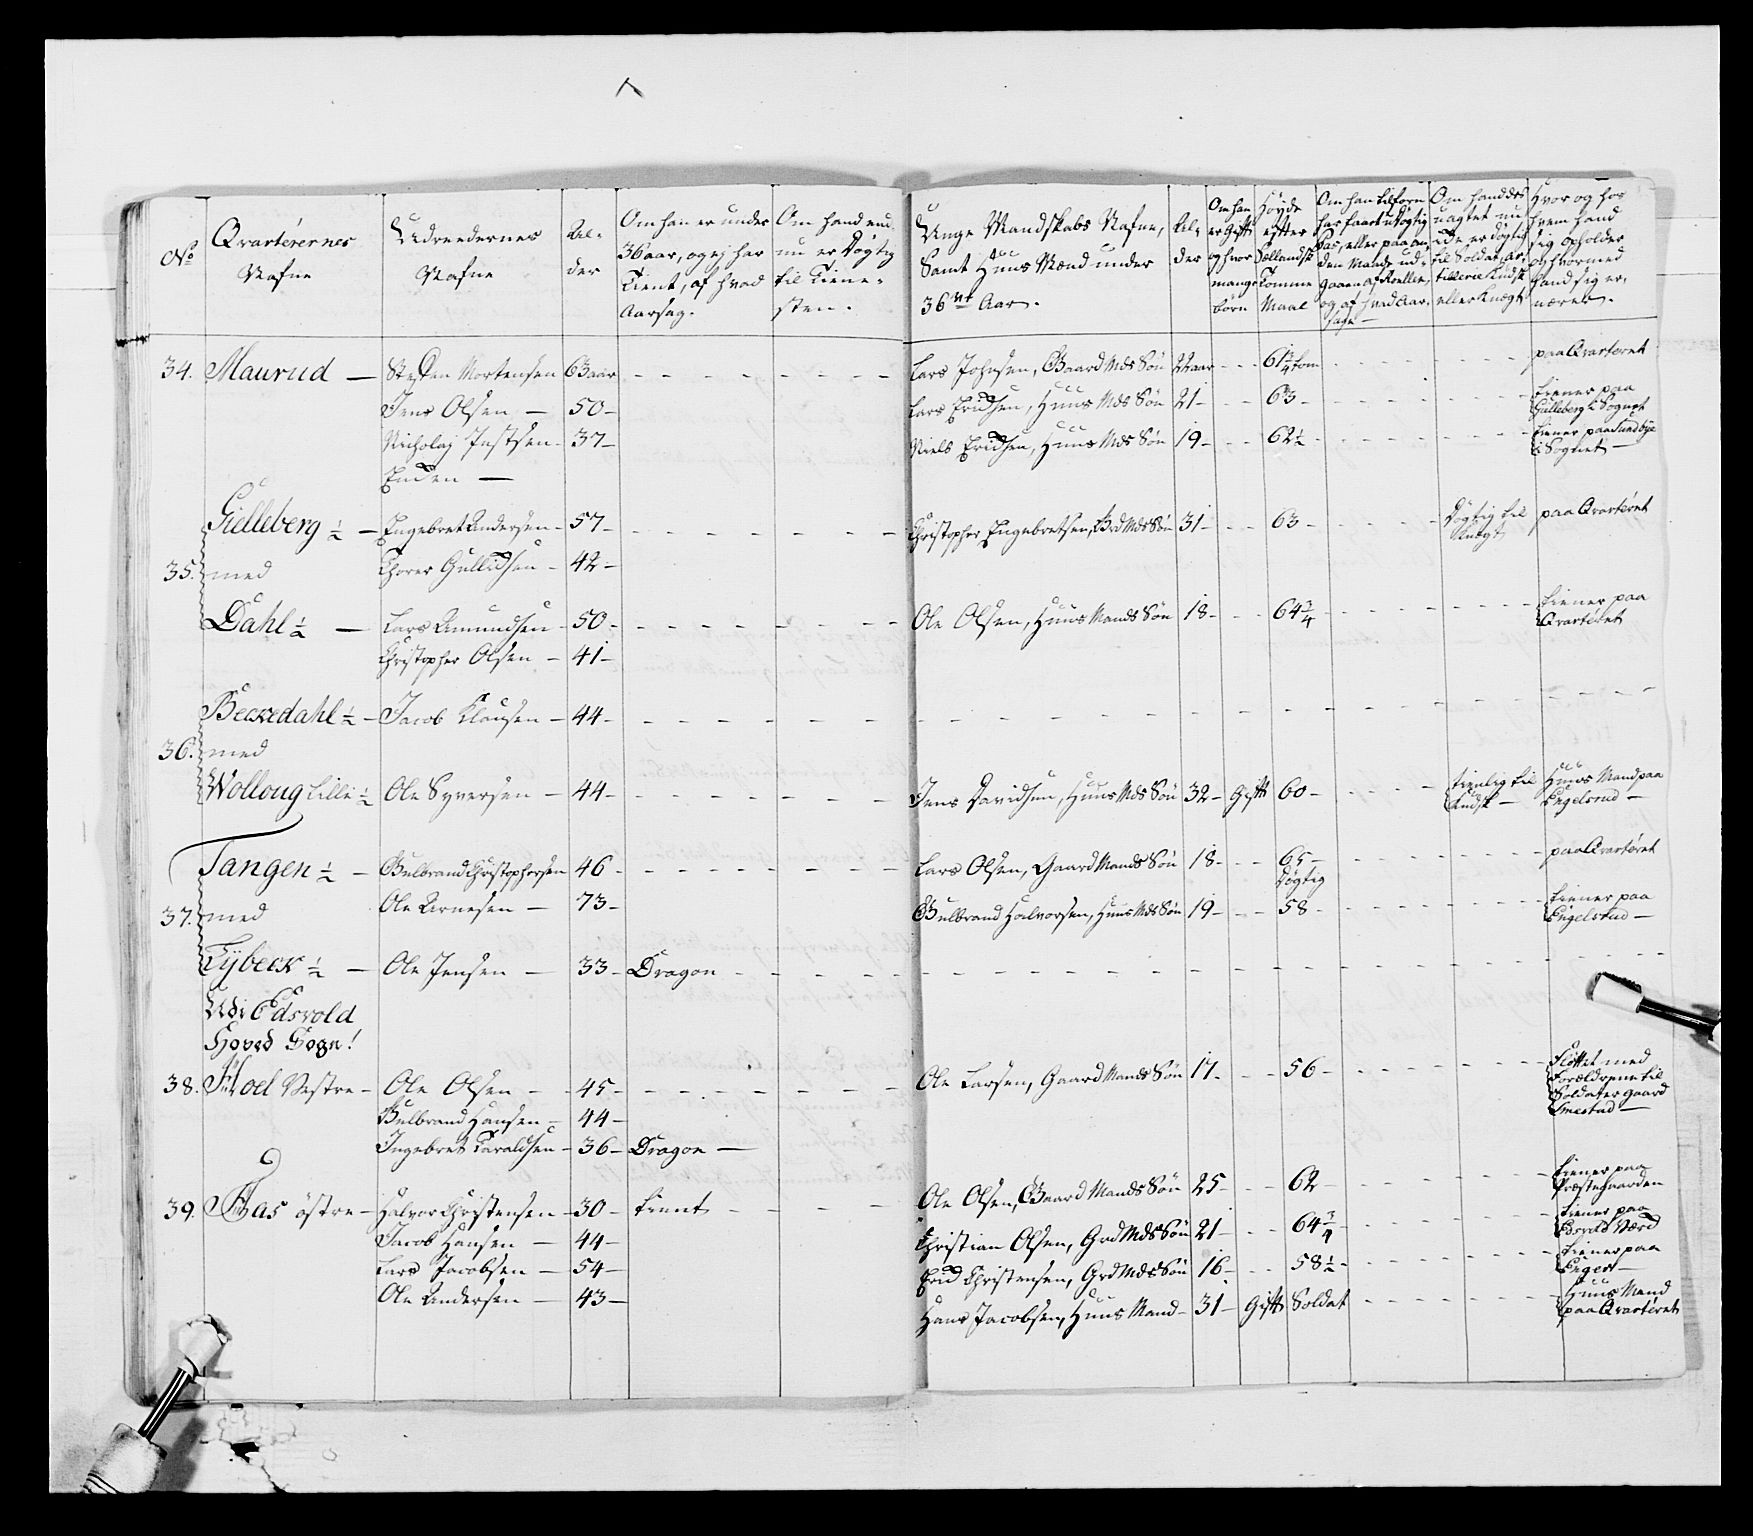 No
Qvartérernes Nafne
Udreedernes Nafne
Al-
der
Om han er under
36 aar, og ej har
Tient, af hvad
Aarsag.
Om hand end
nu er Døgtig
til Tiene-
sten.
Unge Mandskabs Nafne,
Samt Huus Mænd under
36 Aar.
Al-
der
Om han
er Gift
og hvor
mange
børn
Høyde
efter
Sællandsk
Tomme
Maal
Om han tilforn
har faaet udøgtig
Pas, eller paa an-
den Maade ud-
gaaen af Rollen,
og af hvad Aar-
sage
Om hand des
uagtet nu
er døgtig
til Soldat, Ar-
tillerie Kudsk
eller Knegt
Hvor og hos
hvem hand
sig opholder
og hvormed
hand sig er-
nærer.
34. Maurud — Steffen Mortensen 63 aar - - - Lars Johnsen, Gaard Mds Søn 22 aar - - 61 3/4 tom - - - paa Qvarteret
Jens Olsen — 50 — Lars Erichsen, Huus Mds Søn 21 - - - 63 - - - tiener paa
Gulleberg i Sognet
Nicholaj Justsen - 37 — Niels Erichsen, Huus Mds Søn 19 - - - 62 1/2 - - - tiener paa Sundbye
i Sognet —
Enken —
Gielleberg 1/2 — Engebret Andersen - 57 - - - Christopher Engebretsen, Grd Mds Søn 31 - - - 63 - - - Døgtig til
Knegt paa Qvarteret
35. med Thorer Gullichsen - 42 —
Dahl 1/2 — Lars Amundsen - 50 - - - Ole Olsen, Huus Mands Søn 18 - - - 64 3/4 - - - tiener paa
Qvarteret
Christopher Olsen — 41 —
Beckedahl 1/2 — Jacob Klausen — 44 - - -
36. med
Wolloug Lille 1/2 Ole Syversen — 44 - - - Jens Davidsen, Huus Mds Søn 32 - Gift 60 - - - tienlig til
Kudsk — Huus Mand paa
Engelsrud —
Tangen 1/2 — Gulbrand Christophersen 46 - - - Lars Olsen, Gaard Mands Søn 18 - - - 65 —
Døgtig - - - paa Qvarteret
37. med Ole Arnesen — 73 — Gulbrand Halvorsen, Huus Mds Søn 19 - - - 58 - - - tiener paa
Engelstad —
Tÿbeck 1/2 — Ole Jensen — 33 - Dragon - - -
Udi Edsvold
Hoved Sogn!
38. Hoel Vestre - Ole Olsen — 45 - - - Ole Larsen, Gaard Mands Søn 17 - - - 56 - - - Fløttet med
Forældrene til
Soldater gaard
Smestad —
Gulbrand Hansen — 44 —
Ingebret Taraldsen - 36 - Dragon —
39. Aas östre - Halvor Christensen - 30 - tient - - - Ole Olsen, Gaard Mands Søn 25 - - - 62 - - - tiener paa
Præstegaarden
Jacob Hansen — 44 — Christian Olsen, Grd Mds Søn 21 - - - 64 3/4 - - - tiener paa
Edsvold Værk
Lars Jacobsen — 54 — Erich Christensen, Grd Mds Søn 16 - - - 58 1/2 - - - tiener paa
Ole Andersen — 43 — Hans Jacobsen, Huus Mand - 31 - Gift Soldat - - - Huus Mand
paa Qvarteret